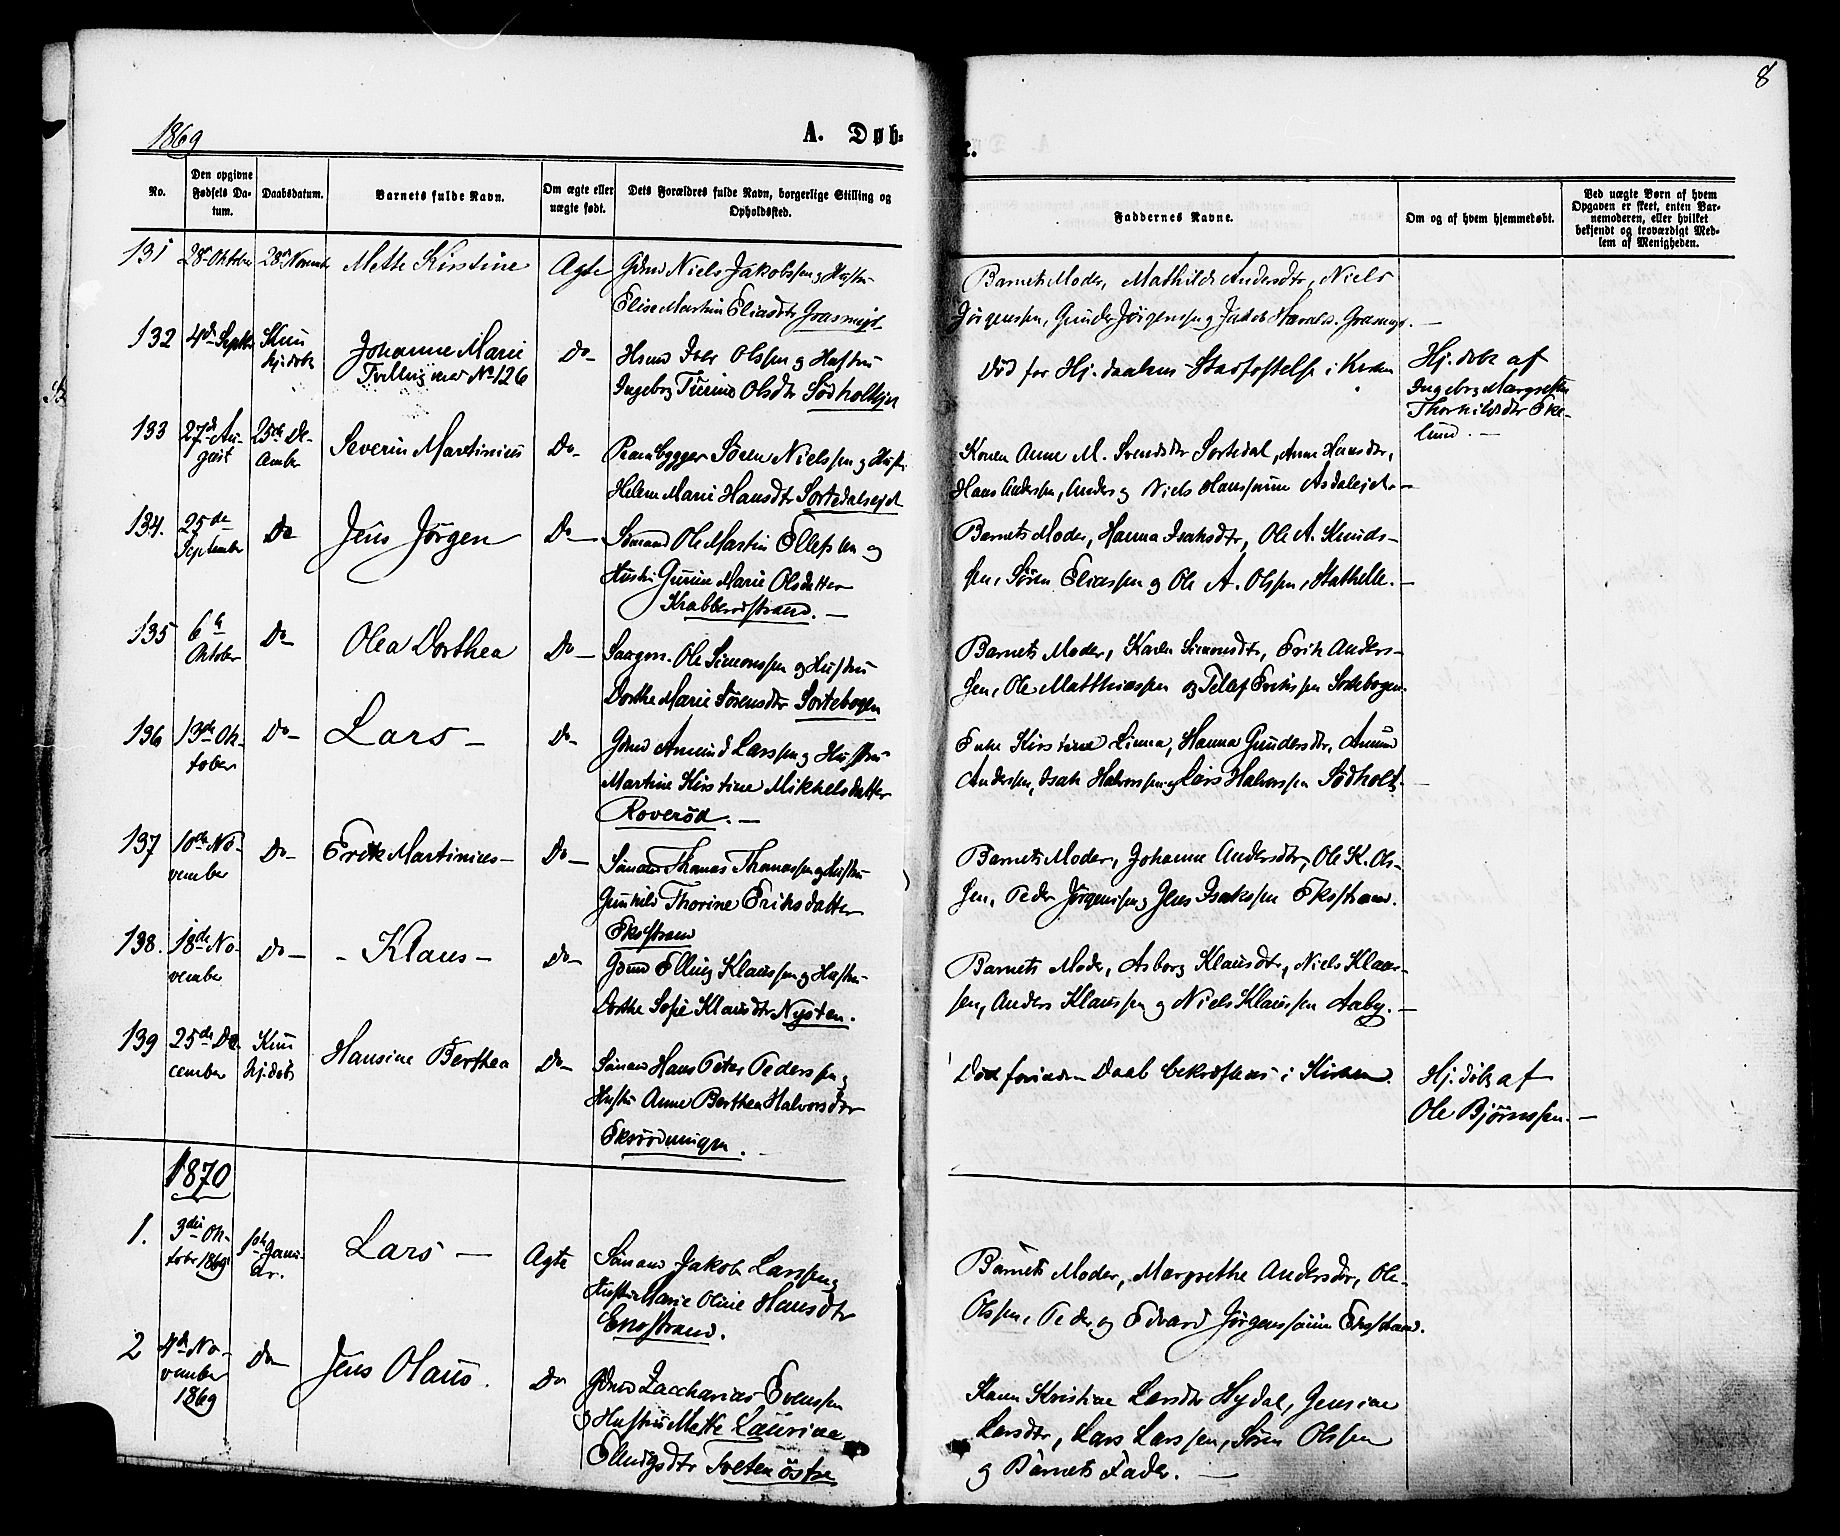 8
1869
A. Døb-
e.
No.
Den opgivne
Fødsels Da-
tum.
Daabsdatum.
Barnets fulde Navn.
Om ægte eller
uægte født.
Dets Forældres fulde Navn, borgerlige Stilling og
Opholdssted.
Faddernes Navne.
Om og af hvem hjemmedøbt.
Ved uægte Børn af hvem
Opgaven er skeet, enten Bar-
nemoderen, eller hvilket
bekjendt og troværdigt Med-
lem af Menigheden.
131 28de Oktober Mette Kirstine Ægte Gdmd Niels Jakobssen og Hustru
Elise Martine Eliasdtr Grasmyr
Barnets Moder, Mathilde Andersdtr, Niels
Jørgenssen, Gunder Jørgenssen og Jakob Grasmyr. —
132 4de Septbr Kun
hj.døbt
Johanne Marie
Tvilling med No 126
Do— Hsmd Iver Olssen og Hustru
Ingeborg Olsdtr
Død før Stadfæstelse i Kirken
Hj. døbt af
Ingeborg Margrethe
Thorkildsdtr Eke-
lund. —
133 27de Au-
gust
25de De-
cember
Severin Martinius Do— Prambygger Søren Nielssen og Hustru
Helene Marie Hansdtr
Konen Anne M. Svendsdtr Sortedal, Anne Hansdtr,
Hans Anderssen, Anders og Niels —
134. 25de
September
Do Jens Jørgen Do— Sømand Ole Martin Ellefssen og
Hustru Gurine Marie Olsdatter
Krabberødstrand. —
Barnets Moder, Hanna Isaksdtr, Ole A. Knuds-
sen, Søren Eliassen og Ole A. Olssen, Stathelle. —
135 6te
Oktober
Do— Olea Dorthea Do— Ole Simonssen og Hustru
Dorthe Marie Sørensdtr Sortebogen
Barnets Moder, Karen Simonsdtr, Erik Anders-
sen, Ole Matthiassen og Tellef Erikssen Sortebogen.
136 13de Ok-
tober
Do— Lars — Do— Gdmd Amund Larssen og Hustru
Martine Kirstine Mikkelsdatter
Roverød. —
Enke Kirstine Linna, Hanna Gundersdtr, Amund
Anderssen, Isak Halvorssen og Lars Halvorssen Sødholt. —
137 10de No-
vember
Do— Erik Martinius — Do— Sømand Thomas Thomassen og Hustru
Gunhild Thorine Eriksdatter
Ekstrand
Barnets Moder, Johanne Andersdtr, Ole K. Ols-
sen, Peder Jørgenssen og Jens Isakssen Ekstrand.
138. 18de No-
vember
Do— - Klaus - Do— Gdmd Elling Klaussen og Hustru
Dorthe Sofie Klausdtr Nysten.
Barnets Moder, Asborg Klausdtr, Niels Klaus-
sen, Anders Klaussen og Niels Klaussen Aaby. —
139 25de De-
cember
Kun
hj.døbt
Hansine Berthea Do— Sømand Hans Peter Pederssen og
Hustru Anne Berthea Halvorsdtr
Død førinden Daab bekræftedes i Kirken.
Hj. døbt af
Ole Bjørnssen. —
1870
1. 3die Ok-
tobr 1869
1ste Janu-
ar.
Lars — Ægte Sømand Jakob Larssen og
Hustru Marie Oline Hansdtr
Ekstrand.
Barnets Moder, Margrethe Andersdtr, Ole
Olssen, Peder og Edvard Jørgenssønner Ekstrand.
2 4de No-
vember
1869
Do— Jens Olaus. Do Gdmd Zaccharias Evenssen
og Hustru Mette Laurine
Ellingsdtr Tveten østre
Karen Kristine Larsdtr Hydal, Gensine
Larsdtr, Lars Larssen, Søren Olssen
og Barnets Fader. —